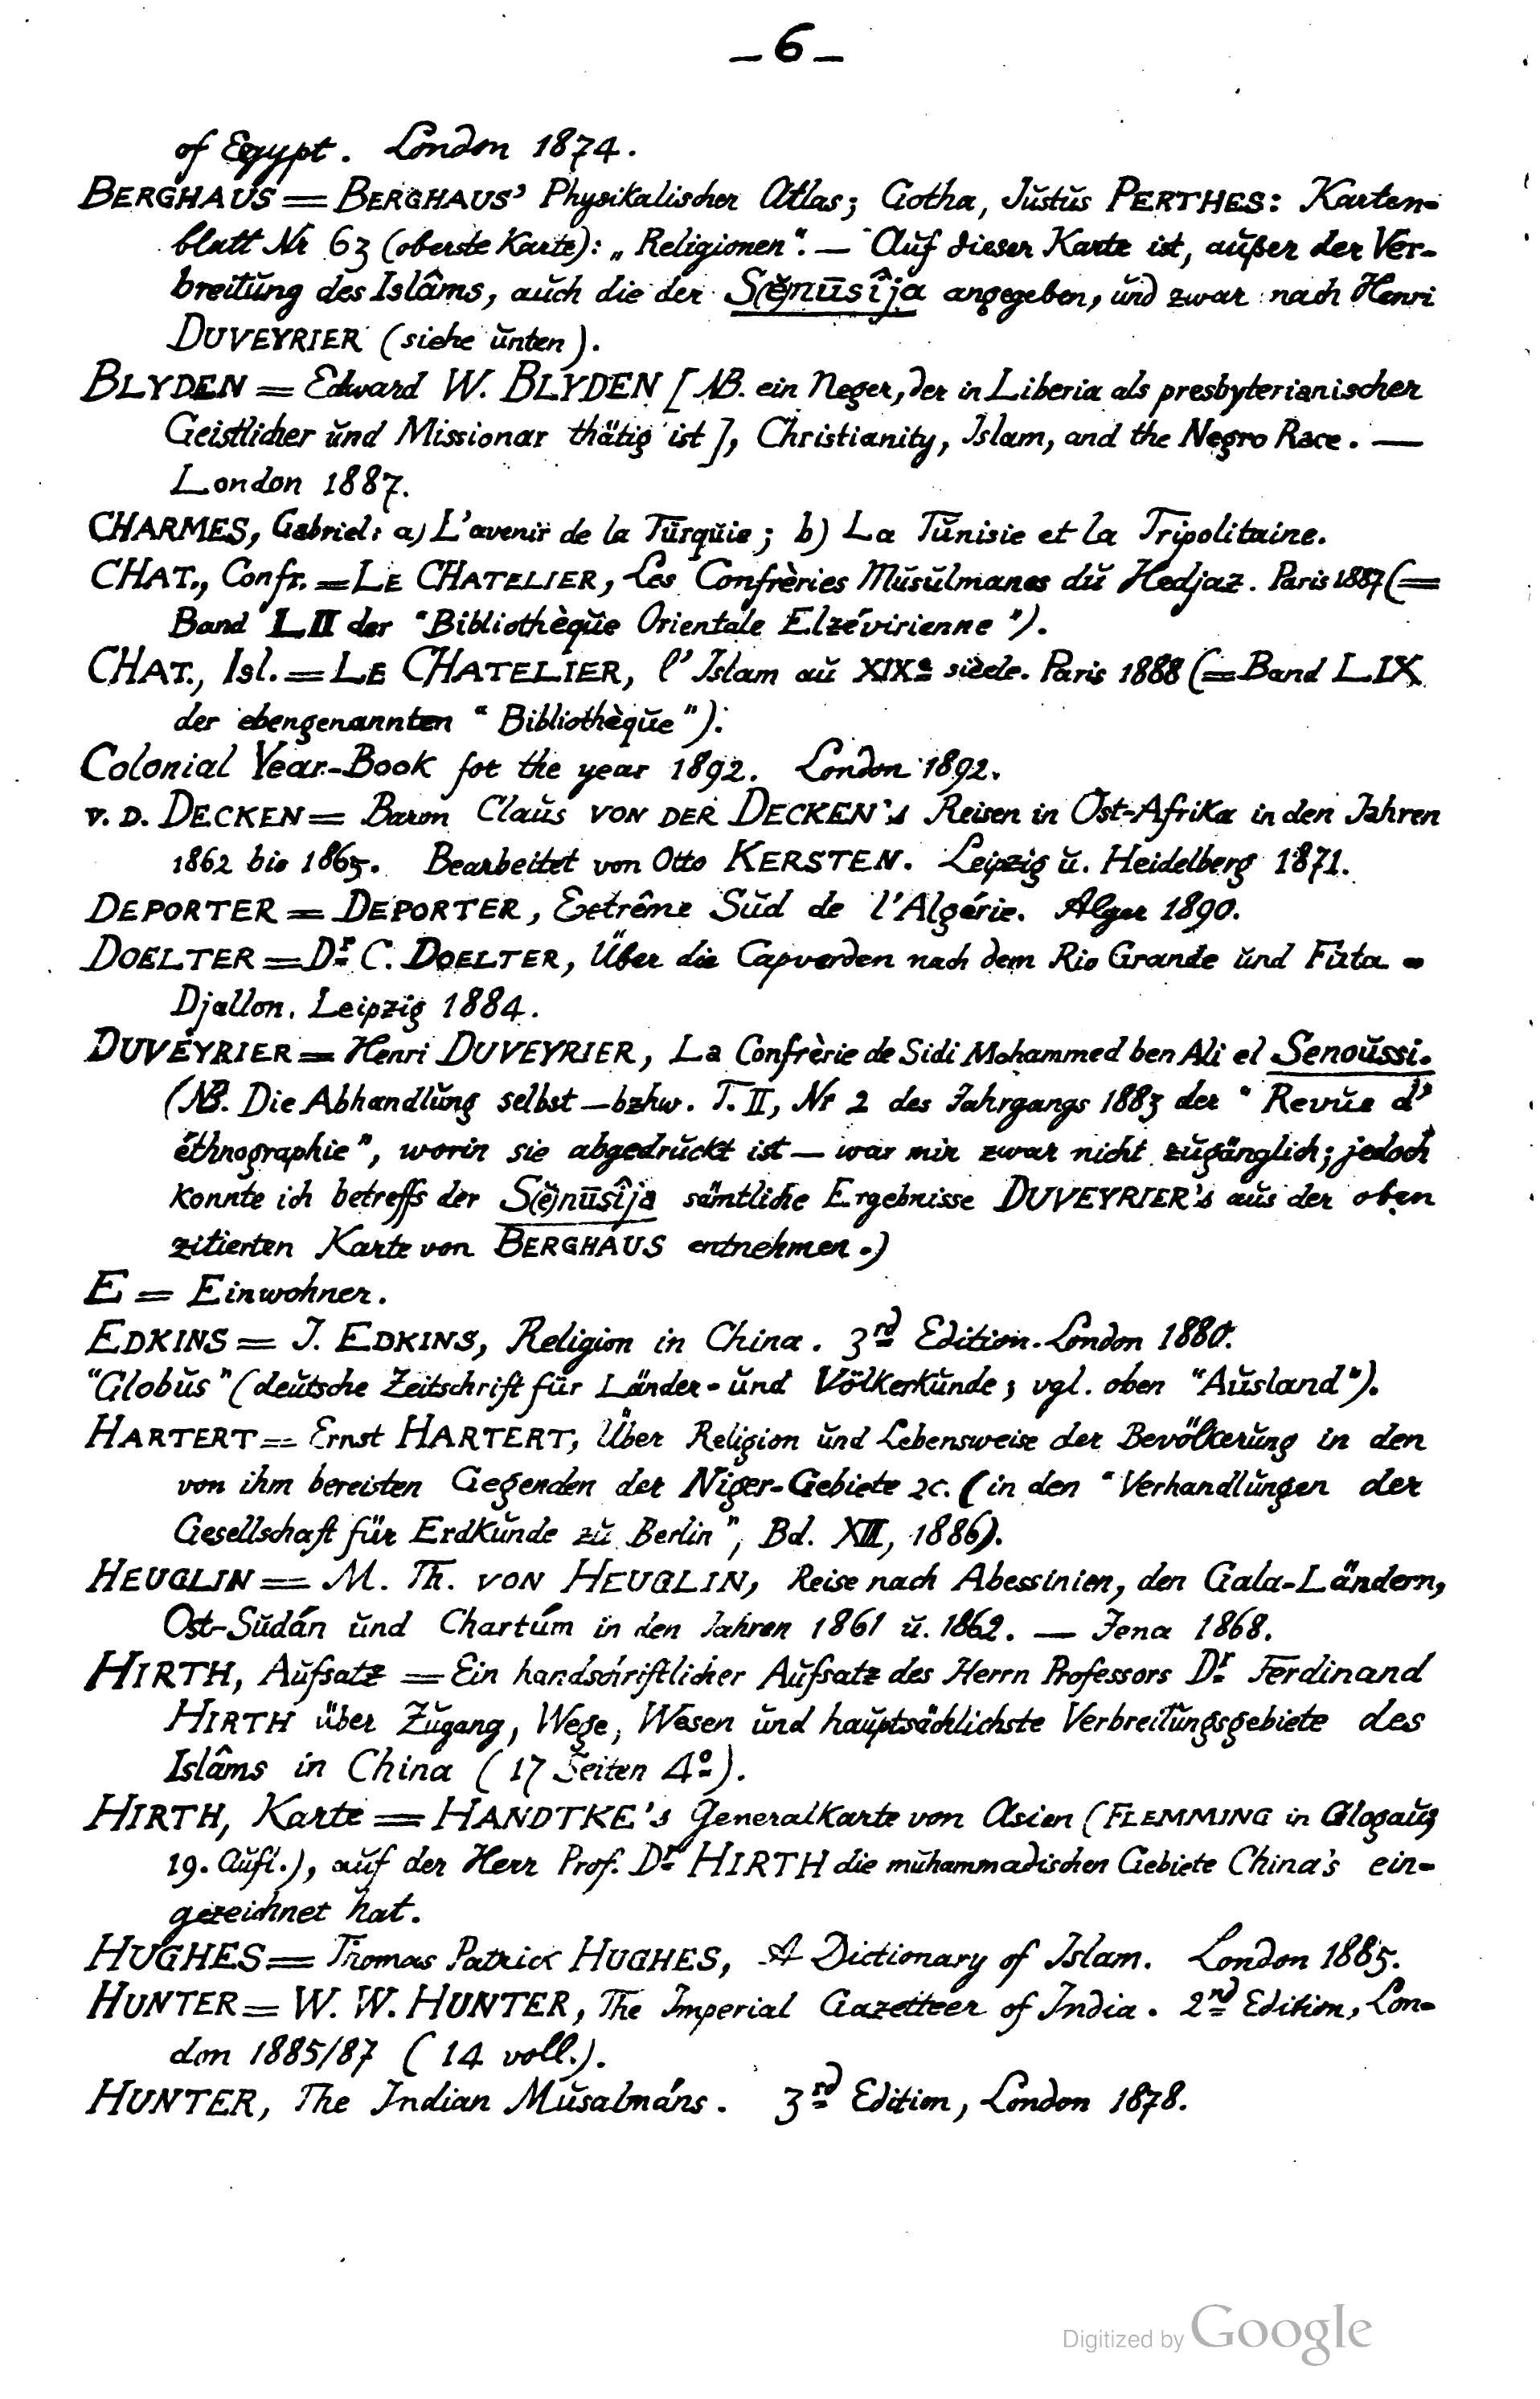 – 6 –
of Egypt. London 1874.
BERGHAUS = BERGHAUS' Physikalischer Atlas; Gotha, Justus PERTHES: Karten-
blatt Nr 63 (oberste Karte): „Religionen". — Auf dieser Karte ist, außer der Ver-
breitung des Islâms, auch die der S(ĕ)nūsîja angegeben, und zwar nach Henri
DUVEYRIER (siehe unten).
BLYDEN = Edward W. BLYDEN [NB. ein Neger, der in Liberia als presbyterianischer
Geistlicher und Missionar thätig ist], Christianity, Islam, and the Negro Race. —
London 1887.
CHARMES, Gabriel: a) L'avenir de la Turquie; b) La Tunisie et la Tripolitaine.
CHAT., Confr. = LE CHATELIER, Les Confrèries Musulmanes du Hedjaz. Paris 1887 (=
Band LII der "Bibliothèque Orientale Elzévirienne").
CHAT., Isl. = LE CHATELIER, l'Islam au XIXe siècle. Paris 1888 (= Band LIX
der ebengenannten "Bibliothèque").
Colonial Year-Book for the year 1892. London 1892.
v. D. DECKEN = Baron Claus VON DER DECKEN's Reisen in Ost-Afrika in den Jahren
1862 bis 1865. Bearbeitet von Otto KERSTEN. Leipzig u. Heidelberg 1871.
DEPORTER = DEPORTER, Extrême Sud de l'Algérie. Alger 1890.
DOELTER = Dr C. DOELTER, Über die Capverden nach dem Rio Grande und Futa-
Djallon. Leipzig 1884.
DUVEYRIER = Henri DUVEYRIER, La Confrèrie de Sidi Mohammed ben Ali el Senoussi.
(NB. Die Abhandlung selbst — bzhw. T. II, Nr 2 des Jahrgangs 1883 der "Revue d'
éthnographie", worin sie abgedruckt ist — war mir zwar nicht zugänglich; jedoch
konnte ich betreffs der S(ĕ)nūsîja sämtliche Ergebnisse DUVEYRIER's aus der oben
zitierten Karte von BERGHAUS entnehmen.)
E = Einwohner.
EDKINS = J. EDKINS, Religion in China. 3rd Edition. London 1880.
"Globus" (deutsche Zeitschrift für Länder- und Völkerkunde; vgl. oben "Ausland").
HARTERT = Ernst HARTERT, Über Religion und Lebensweise der Bevölkerung in den
von ihm bereisten Gegenden der Niger-Gebiete 2c. (in den "Verhandlungen der
Gesellschaft für Erdkunde zu Berlin", Bd. XIII, 1886).
HEUGLIN = M. Th. VON HEUGLIN, Reise nach Abessinien, den Gala-Ländern,
Ost-Sudán und Chartúm in den Jahren 1861 u. 1862. — Jena 1868.
HIRTH, Aufsatz = Ein handschriftlicher Aufsatz des Herrn Professors Dr Ferdinand
HIRTH über Zugang, Wege, Wesen und hauptsächlichste Verbreitungsgebiete des
Islâms in China (17 Seiten 4o).
HIRTH, Karte = HANDTKE's Generalkarte von Asien (FLEMMING in Glogau;
19. Aufl.), auf der Herr Prof. Dr HIRTH die muhammadischen Gebiete China's ein-
gezeichnet hat.
HUGHES = Thomas Patrick HUGHES, A Dictionary of Islam. London 1885.
HUNTER = W. W. HUNTER, The Imperial Gazetteer of India. 2nd Edition, Lon-
don 1885/87 (14 voll.).
HUNTER, The Indian Musalmáns. 3rd Edition, London 1878.
Digitized by Google